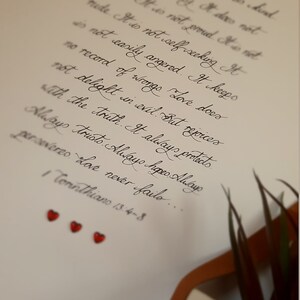 It does not
It is not proud It is not
rude. It is not self-seeking It
is not easily angered It keeps
no record of wrongs Love does
not delight in evil But rejoices
with the truth. It always protects
Always Trusts Always hopes Always
perseveres Love never fails...
1 Corinthians 13:4-8